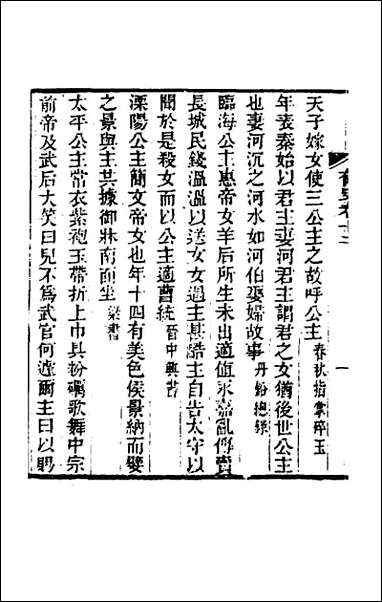 天子嫁女使三公主之故呼公主春秋指掌碎玉
年表秦始以君主妻河君主謂君之女猶後世公主
也妻河沉之河水如河伯娶婦故事丹鉛總錄
臨海公主惠帝女羊后所生未出適值永嘉亂傳賣
長城民錢溫溫以送女女遇主甚酷主自告太守以
聞於是殺女而以公主適曹統晉中興書
溧陽公主簡文帝女也年十四有美色侯景納而嬖
之景與主共據御牀南面坐梁書
太平公主常衣紫袍玉帶折上巾具粉礪歌舞中宗
前帝及武后大笑曰兒不為武官何遽爾主曰以賜